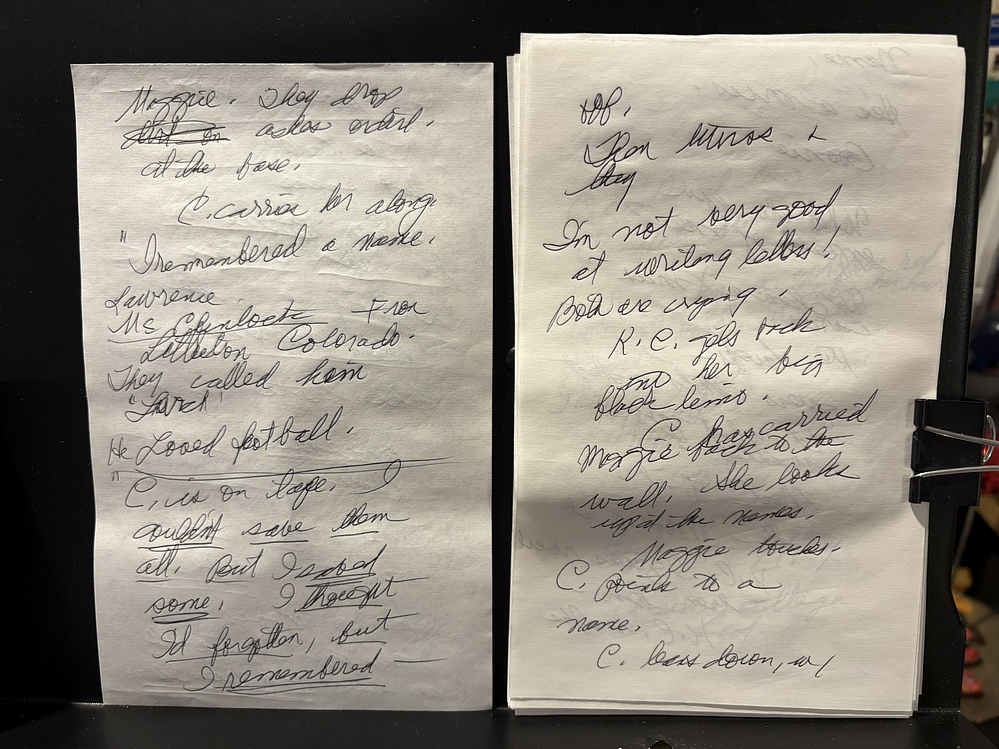 Maggie. They drop
ashes ordirl.
at the base.
C. carries her along.
"I remembered a name.
Lawrence
Mc Clinlock From
Littleton Colorado.
They called him
"Larch"
He Loved football.
"
C. is on tape. I
couldn't save them
all. But I saved
some. I thought
I'd forgotten, but
I remembered —
off.
Then &
they
I'm not very good
at writing letters!
Both are crying.
R.C. gets back
into her big
black limo.
C has carried
Maggie back to the
wall. She looks
up at the names.
Maggie touches.
C. points to a
name.
C. leans down, w/